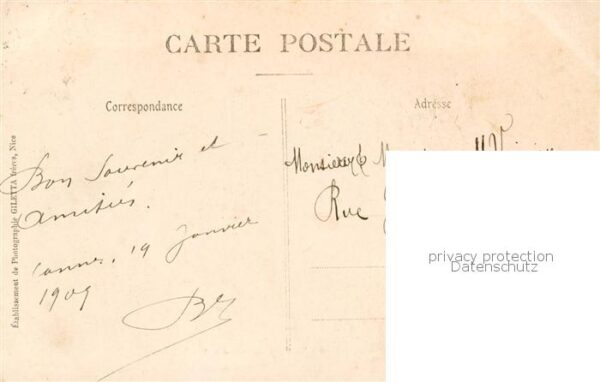 CARTE POSTALE
Correspondance
Adresse
Bon Souvenir et
amitiés.
Cannes, 19 Janvier
1909
Monsieur
Rue
privacy protection
Datenschutz
Établissement de Photographie GILETTA frères, Nice